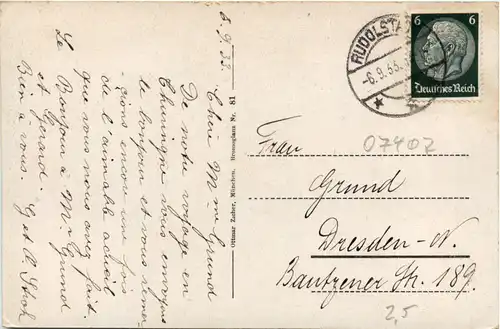 6.9.33.
Chère Mme Grund
De notre voyage en
Thuringne nous envoyons
le bonjour et vous remer-
cions encore une fois
de l'aimable achat
que vous nous avez fait.
Le Bonjour à Mr Grund
et Gerard.
Bien à vous. G et l. Stroh
Ottmar Zieher, München. Bromoglanz Nr. 81
RUDOLSTA
-6.9.33.
6 6
Deutsches Reich
07402
Frau
Grund
Dresden-N.
Bautzener Str. 189.
2,5